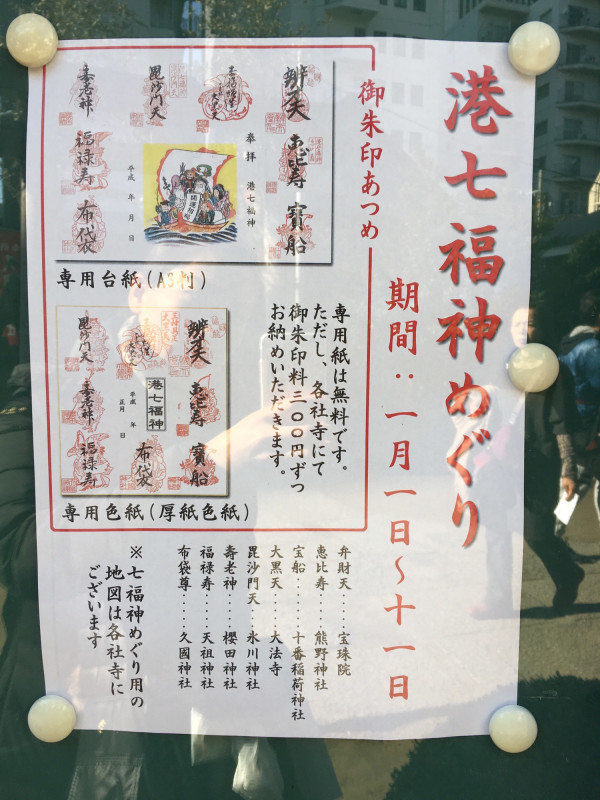 港七福神めぐり
期間：一月一日～十一日
御朱印あつめ
辨天
毘沙門天
壽老神
恵比寿
奉拝 港七福神
平成 年 月 日
福禄寿
寳船
布袋
専用台紙(A3判)
辨天
毘沙門天
恵比寿
港七福神
平成 年
正月 日
壽老神
寳船
布袋
福禄寿
専用色紙(厚紙色紙)
専用紙は無料です。
ただし、各社寺にて
御朱印料三〇〇円ずつ
お納めいただきます。
弁財天‥‥宝珠院
恵比寿‥‥熊野神社
宝船‥‥‥十番稲荷神社
大黒天‥‥大法寺
毘沙門天‥氷川神社
壽老神‥‥櫻田神社
福禄寿‥‥天祖神社
布袋尊‥‥久國神社
※七福神めぐり用の
地図は各社寺に
ございます